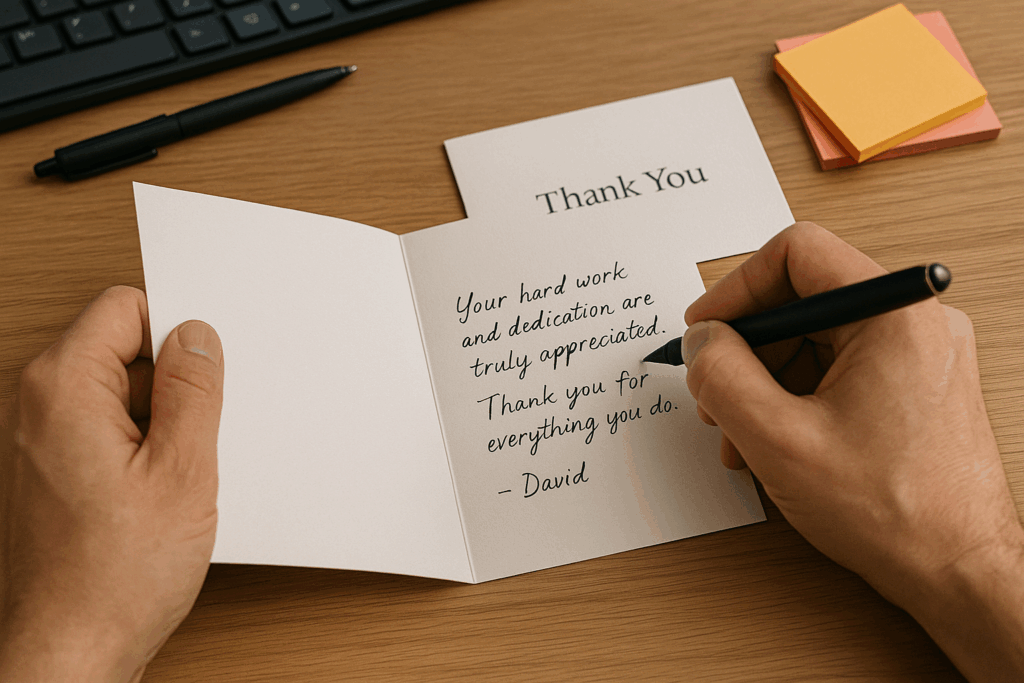 Thank You
Your hard work
and dedication are
truly appreciated.
Thank you for
everything you do.
– David